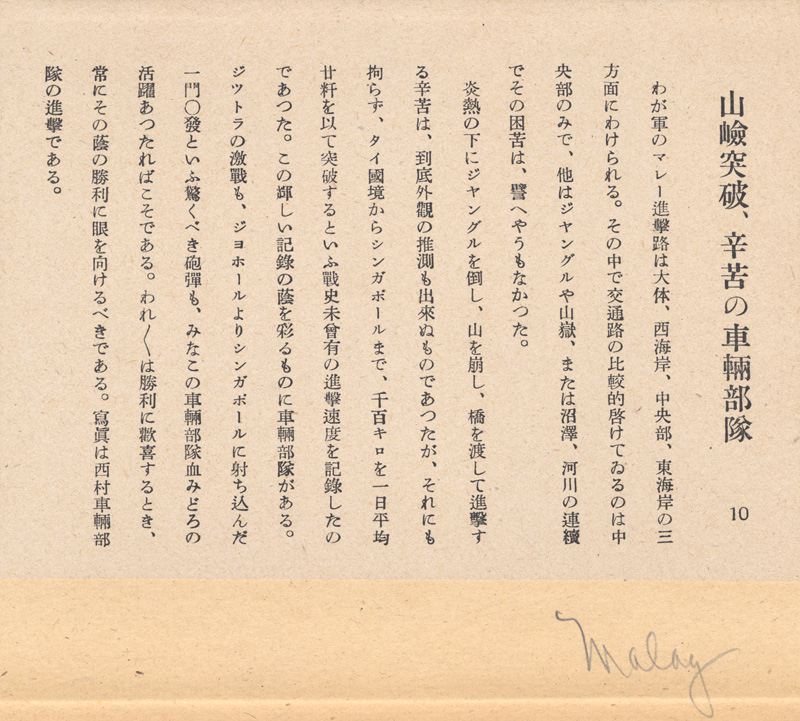 山嶮突破、辛苦の車輛部隊　10
わが軍のマレー進擊路は大体、西海岸、中央部、東海岸の三
方面にわけられる。その中で交通路の比較的啓けてゐるのは中
央部のみで、他はジヤングルや山嶽、または沼澤、河川の連續
でその困苦は、譬へやうもなかつた。
炎熱の下にジヤングルを倒し、山を崩し、橋を渡して進擊す
る辛苦は、到底外觀の推測も出來ぬものであつたが、それにも
拘らず、タイ國境からシンガポールまで、千百キロを一日平均
廿粁を以て突破するといふ戰史未曾有の進擊速度を記錄したの
であつた。この輝しい記錄の蔭を彩るものに車輛部隊がある。
ジツトラの激戰も、ジヨホールよりシンガポールに射ち込んだ
一門〇發といふ驚くべき砲彈も、みなこの車輛部隊血みどろの
活躍あつたればこそである。われ〳〵は勝利に歡喜するとき、
常にその蔭の勝利に眼を向けるべきである。寫眞は西村車輛部
隊の進擊である。
Malay